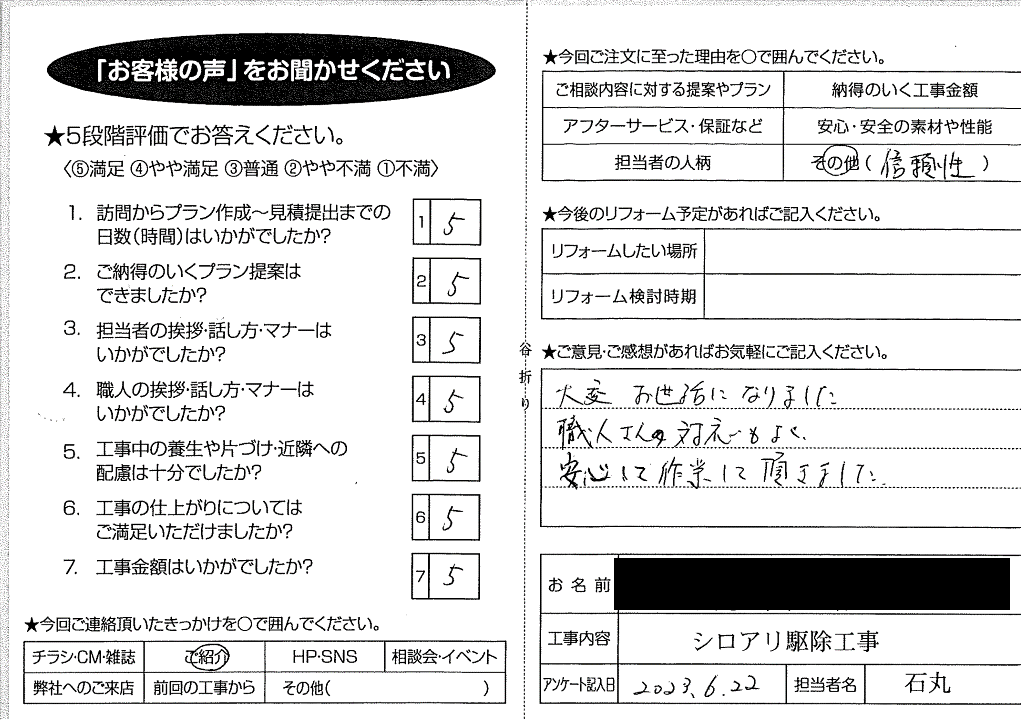 「お客様の声」をお聞かせください
★5段階評価でお答えください。
〈⑤満足 ④やや満足 ③普通 ②やや不満 ①不満〉
1. 訪問からプラン作成～見積提出までの
日数(時間)はいかがでしたか?
1 5
2. ご納得のいくプラン提案は
できましたか?
2 5
3. 担当者の挨拶・話し方・マナーは
いかがでしたか?
3 5
4. 職人の挨拶・話し方・マナーは
いかがでしたか?
4 5
5. 工事中の養生や片づけ・近隣への
配慮は十分でしたか?
5 5
6. 工事の仕上がりについては
ご満足いただけましたか?
6 5
7. 工事金額はいかがでしたか?
7 5
★今回ご連絡頂いたきっかけを○で囲んでください。
チラシ・CM・雑誌 ご紹介 HP・SNS 相談会・イベント
弊社へのご来店 前回の工事から その他( )
谷折り
★今回ご注文に至った理由を○で囲んでください。
ご相談内容に対する提案やプラン 納得のいく工事金額
アフターサービス・保証など 安心・安全の素材や性能
担当者の人柄 その他(信頼性)
★今後のリフォーム予定があればご記入ください。
リフォームしたい場所
リフォーム検討時期
★ご意見・ご感想があればお気軽にご記入ください。
大変 お世話になりました
職人さんの対応もよく、
安心して作業して頂きました。
お名前
工事内容 シロアリ駆除工事
アンケート記入日 2023.6.22 担当者名 石丸